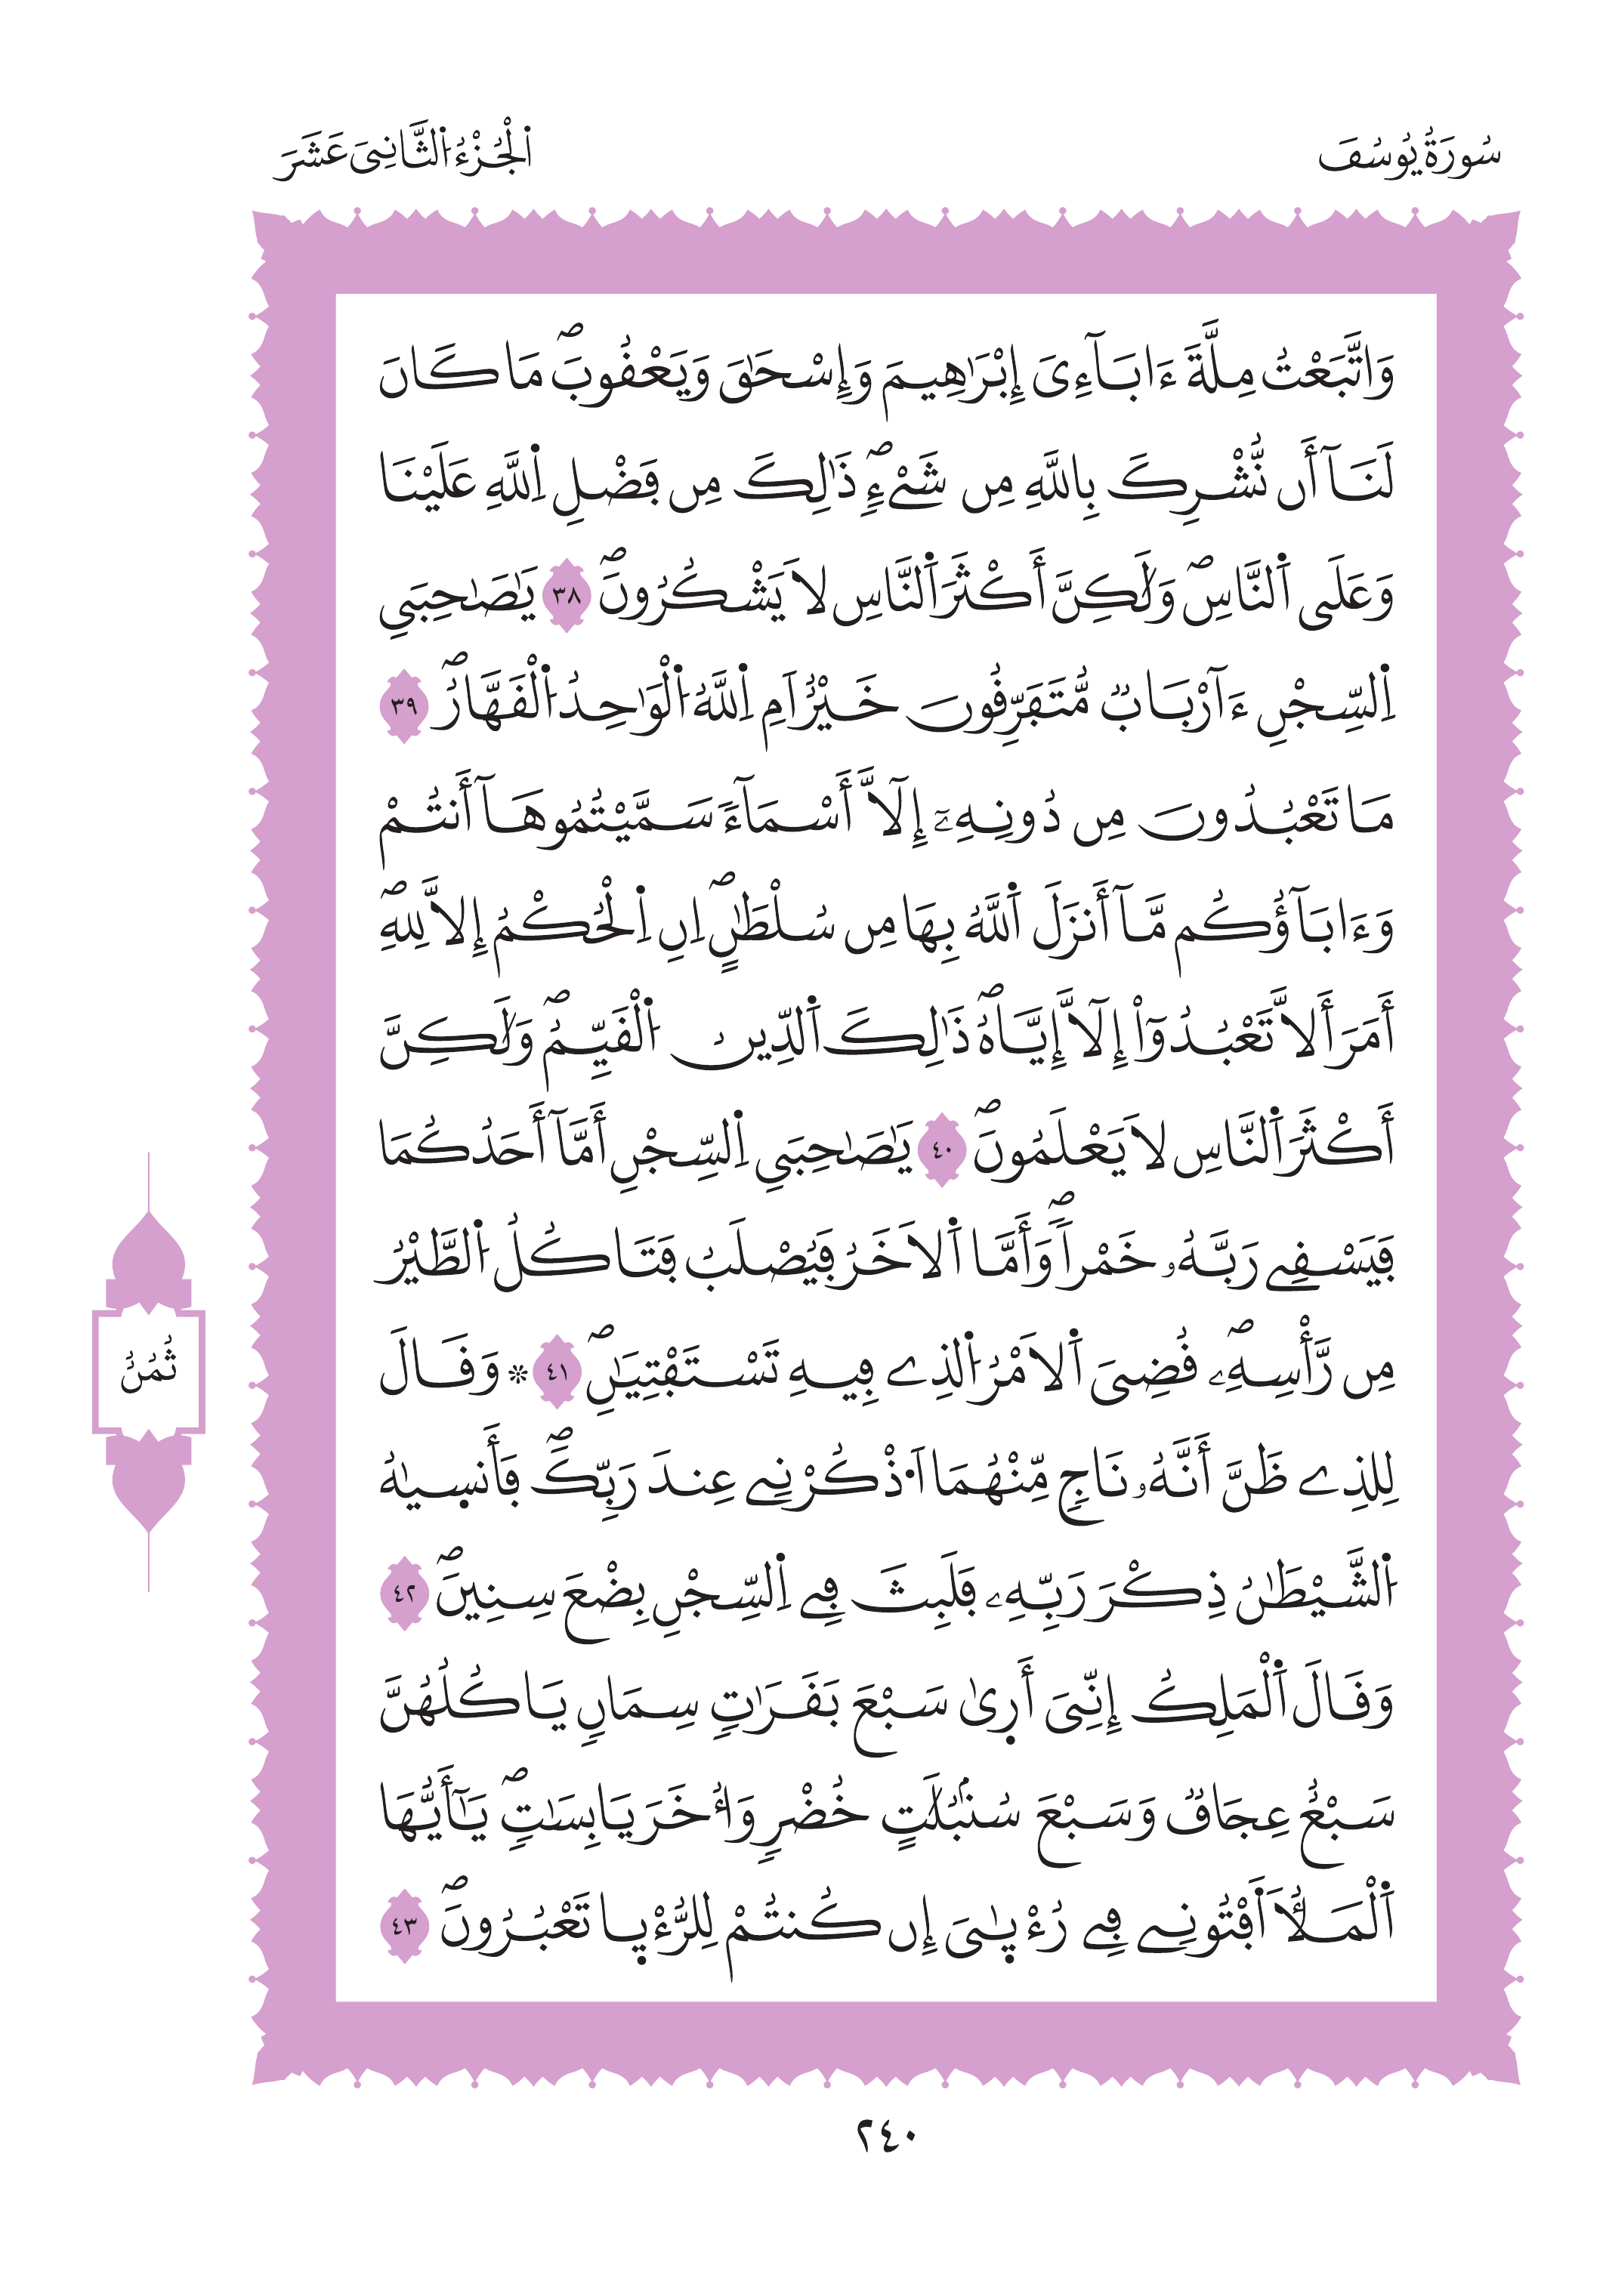 سُورَةُ يُوسُفَ
اَ۬لْجُزْءُ اُ۬لثَّانِيَ عَشَرَ
وَاتَّبَعْتُ مِلَّةَ ءَابَآءِيَ إِبْرَٰهِيمَ وَإِسْحَٰقَ وَيَعْقُوبَۖ مَا كَانَ
لَنَآ أَن نُّشْرِكَ بِاللَّهِ مِن شَےْءٖۖ ذَٰلِكَ مِن فَضْلِ اِ۬للَّهِ عَلَيْنَا
وَعَلَى اَ۬لنَّاسِۖ وَلَٰكِنَّ أَكْثَرَ اَ۬لنَّاسِ لَا يَشْكُرُونَۖ ٣٨ يَٰصَٰحِبَيِ
اِ۬لسِّجْنِ ءَآرْبَابٞ مُّتَفَرِّقُونَ خَيْرٌ اَمِ اِ۬للَّهُ اُ۬لْوَٰحِدُ اُ۬لْقَهَّارُۖ ٣٩
مَا تَعْبُدُونَ مِن دُونِهِۦٓ إِلَّآ أَسْمَآءٗ سَمَّيْتُمُوهَآ أَنتُمْ
وَءَابَآؤُكُم مَّآ أَنزَلَ اَ۬للَّهُ بِهَا مِن سُلْطَٰنٍۖ اِنِ اِ۬لْحُكْمُ إِلَّا لِلهِۖ
أَمَرَ أَلَّا تَعْبُدُوٓاْ إِلَّآ إِيَّاهُۖ ذَٰلِكَ اَ۬لدِّينُ اُ۬لْقَيِّمُۖ وَلَٰكِنَّ
أَكْثَرَ اَ۬لنَّاسِ لَا يَعْلَمُونَۖ ٤٠ يَٰصَٰحِبَيِ اِ۬لسِّجْنِ أَمَّآ أَحَدُكُمَا
فَيَسْقِے رَبَّهُۥ خَمْراٗۖ وَأَمَّا اَ۬لَاخَرُ فَيُصْلَبُ فَتَاكُلُ اُ۬لطَّيْرُ
مِن رَّأْسِهِۦۖ قُضِيَ اَ۬لَامْرُ اُ۬لذِے فِيهِ تَسْتَفْتِيَٰنِۖ ٤١ ۞ وَقَالَ
لِلذِے ظَنَّ أَنَّهُۥ نَاجٖ مِّنْهُمَا اَ۟ذْكُرْنِے عِندَ رَبِّكَۖ فَأَنس۪يٰهُ
اُ۬لشَّيْطَٰنُ ذِكْرَ رَبِّهِۦ فَلَبِثَ فِے اِ۬لسِّجْنِ بِضْعَ سِنِينَۖ ٤٢
وَقَالَ اَ۬لْمَلِكُ إِنِّيَ أَر۪يٰ سَبْعَ بَقَرَٰتٖ سِمَانٖ يَاكُلُهُنَّ
سَبْعٌ عِجَافٞ وَسَبْعَ سُنۢبُلَٰتٍ خُضْرٖ وَأُخَرَ يَابِسَٰتٖۖ يَٰٓأَيُّهَا
اَ۬لْمَلَأُ اَفْتُونِے فِے رُءْيٰ۪يَ إِن كُنتُمْ لِلرُّءْي۪ا تَعْبُرُونَۖ ٤٣
ثُمُنُ
٢٤٠